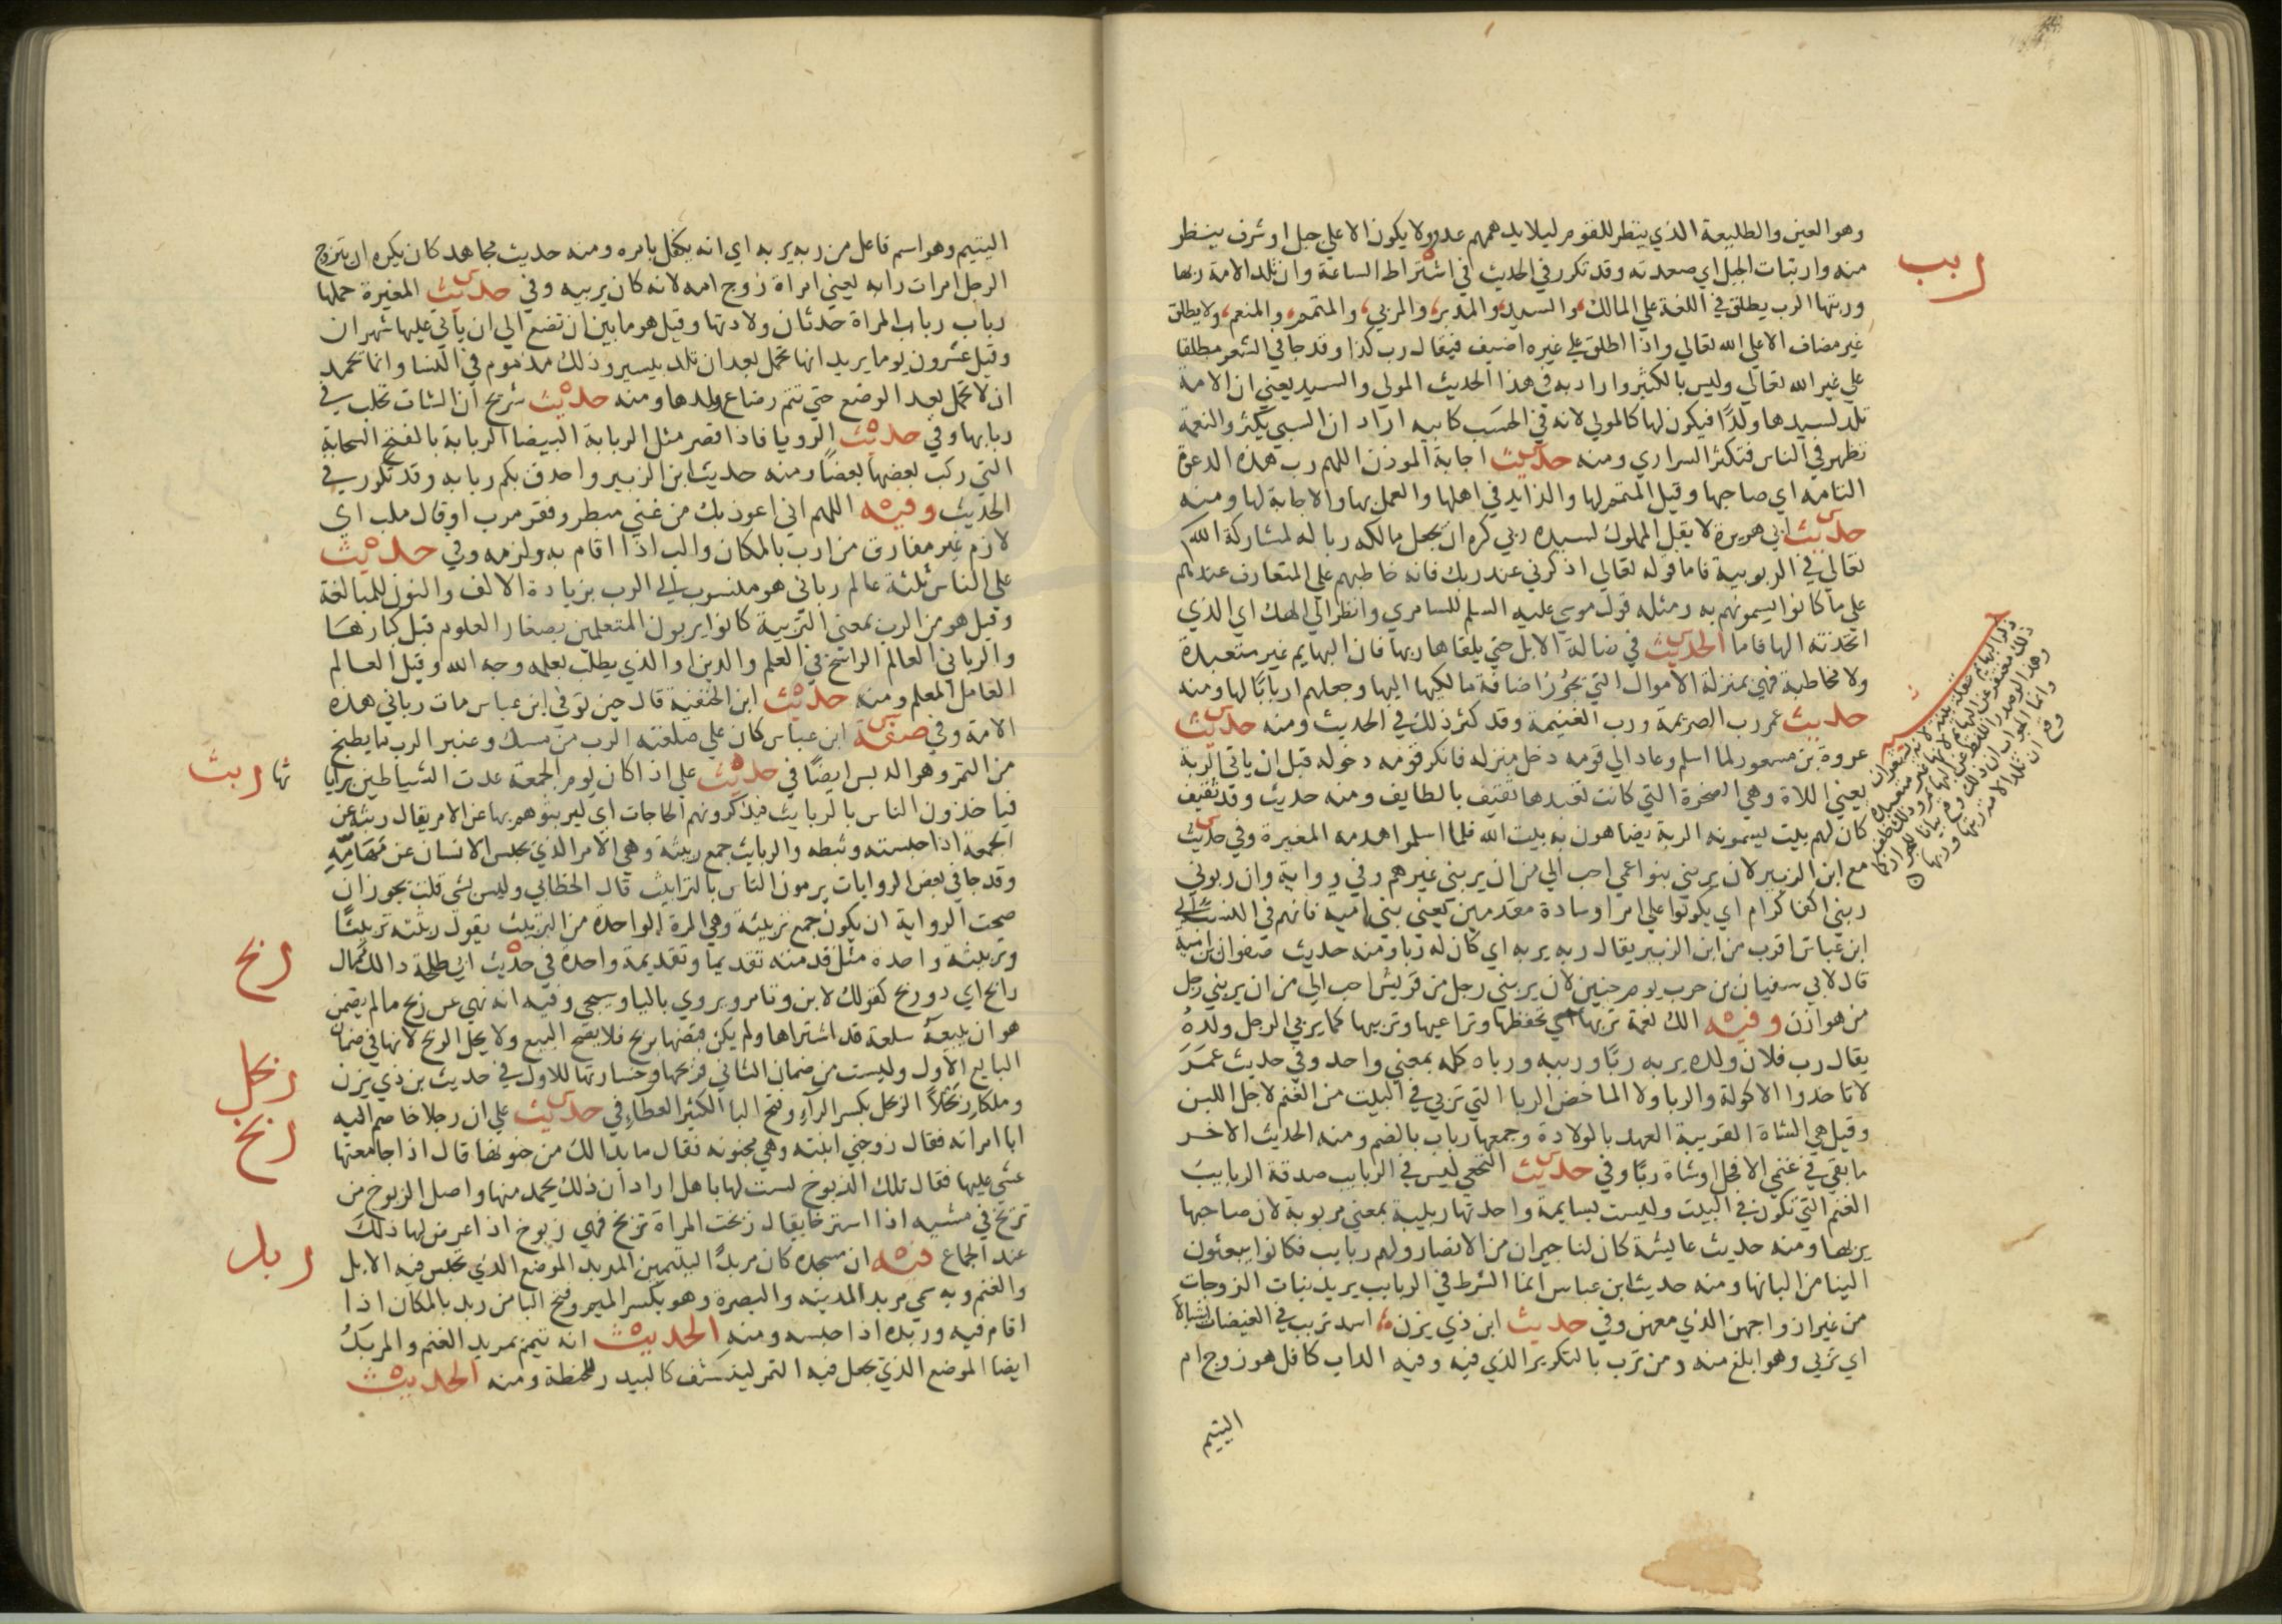 وهو العين والطليعة الذي ينظر للقوم ليلا يدهمهم عدو ولا يكون الا علي جبل او شرف ينظر
منه وارتبات الجبل اي صعدته وقد تكرر في الحديث في اشتراط الساعة وان تلد الامة ربها
ربب
وربتها الرب يطلق في اللغة علي المالك والسيد والمدبر والمربي والمتمم والمنعم ولا يطلق
غير مضاف الا علي الله تعالي واذا اطلق علي غيره اضيف فيقال رب كذا وقد جا في الشعر مطلقا
علي غير الله تعالي وليس بالكثير واراد به في هذا الحديث المولي والسيد يعني ان الامة
تلد لسيدها ولدًا فيكون لها كالمولي لانه في الحسب كابيه اراد ان السبي يكثر والنعمة
تظهر في الناس فتكثر السراري ومنه حديث اجابة الموذن اللهم رب هذه الدعوة
التامه اي صاحبها وقيل المتمم لها والزايد في اهلها والعمل بها والاجابة لها ومنه
حديث ابي هريرة لا يقل المملوك لسيده ربي كره ان يجعل مالكه ربا له لمشاركة الله
تعالي في الربوبية فاما قوله تعالي اذكرني عند ربك فانه خاطبهم علي المتعارف عندهم
علي ما كانوا يسمونهم به ومثله قول موسي عليه السلم للسامري وانظر الي الهك اي الذي
اتخذته الها فاما الحديث في ضالة الابل حتي يلقاها ربها فان البهايم غير متعبدة
ولا مخاطبة فهي بمنزلة الاموال التي يجوز اضافة مالكيها اليها وجعلهم اربابًا لها ومنه
حديث عمر رب الصريمة ورب الغنيمة وقد كثر ذلك في الحديث ومنه حديث
عروة بن مسعود لما اسلم وعاد الي قومه دخل منزله فانكر قومه دخوله قبل ان ياتي الربة
يعني اللاة وهي الصخرة التي كانت تعبدها ثقيف بالطايف ومنه حديث وفد ثقيف
كان لهم بيت يسمونه الربة يضاهون به بيت الله فلما اسلموا هدمه المغيرة وفي حديث
مع ابن الزبير لان يربني بنو اعمي احب الي من ان يربني غيرهم وفي رواية وان ربوني
ربني اكفا كرام اي يكونوا علي امرا وسادة مقدمين يعني بني امية فانهم في النسب الي
ابن عباس اقرب من ابن الزبير يقال ربه يربه اي كان له ربا ومنه حديث صفوان بن امية
قال لابي سفيان بن حرب يوم حنين لان يربني رجل من قريش احب الي من ان يربني رجل
من هوازن وفيه الك نعمة تربها اي تحفظها وتراعيها وتربيها كما يربي الرجل ولدهُ
يقال رب فلان ولده يربه ربًا ورببه ورباه كله بمعني واحد وفي حديث عمَرَ
لا تاخذوا الاكولة والربا ولا الماخض الربا التي تربي في البيت من الغنم لاجل اللبن
وقيل هي الشاة القريبة العهد بالولادة وجمعها رباب بالضم ومنه الحديث الاخر
ما بقي في غنمي الا فحل او شاة ربًا وفي حديث النخعي ليس في الربايب صدقة الربايبَ
الغنم التي تكون في البيت وليست بسايمة واحدتها ربيبة بمعني مربوبة لان صاحبها
يربها ومنه حديث عايشة كان لنا جيران من الانصار ولهم ربايب فكانوا يبعثون
الينا من البانها ومنه حديث ابن عباس انما الشرط في الربايب يريد بنات الزوجات
من غير ازواجهن الذي معهن وفي حديث ابن ذي يزن اسد تربب في الغيضات اشبالا
اي تربي وهو ابلغ منه ومن ترب بالتكرير الذي فيه وفيه الراب كافل هو زوج ام
اليتيم
اليتيم وهو اسم فاعل من ربه يربه اي انه يكفل بامره ومنه حديث مجاهد كان يكره ان يتزوج
الرجل امرات رابه يعني امراة زوج امه لانه كان يربيه وفي حديث المغيرة حملها
رباب رباب المراة حدثان ولادتها وقيل هو ما بين ان تضع الي ان ياتي عليها شهران
وقيل عشرون يوما يريد انها تحمل بعد ان تلد بيسير وذلك مذموم في النسا وانما تحمد
ان لا تحمل بعد الوضع حتي تتم رضاع ولدها ومنه حديث شريح ان الشات تحلب في
ربابها وفي حديث الرويا فاذا قصر مثل الربابة البيضا الربابة بالفتح السحابة
التي ركب بعضها بعضًا ومنه حديث ابن الزبير واحدق بكم ربابه وقد تكرر في
الحديث وفيه اللهم اني اعوذ بك من غني مبطر وفقر مرب او قال ملب اي
لازم غير مفارق من ارب بالمكان والب اذا اقام به ولزمه وفي حديث
علي الناس ثلثة عالم رباني هو منسوب الي الرب بزيادة الالف والنون للمبالغة
وقيل هو من الرب بمعني التربية كانوا يربون المتعلمين بصغار العلوم قبل كبارها
والرباني العالم الراسخ في العلم والدين او الذي يطلب بعلمه وجه الله وقيل العالم
العامل المعلم ومنه حديث ابن الحنفية قال حين توفي ابن عباس مات رباني هذه
الامة وفي صفة ابن عباس كان علي صلعته الرب من مسك وعنبر الرب ما يطبخ
من التمر وهو الدبس ايضًا في حديث علي اذا كان يوم الجمعة غدت الشياطين برايا
تها ربث
فياخذون الناس بالربايث فيذكرونهم الحاجات اي ليربثوهم بها عن الامر يقال ربثه عن
الجمعة اذا حبسته وثبطه والربايث جمع ربيثة وهي الامر الذي يحبس الانسان عن مهامّهِ
وقد جا في بعض الروايات يرمون الناس بالترابيث قال الخطابي وليس بشي قلت يجوز ان
صحت الرواية ان يكون جمع تربيثة وهي المرة الواحدة من التربيث يقول ربثته تربيثًا
وتربيثة واحدة مثل قدمته تقديما وتقديمة واحدة في حديث ابي طلحة ذالك مال
ربح
رابح اي ذو ربح كقولك لابن وتامر ويروي بالبا وسيجي وفيه انه نهي عن ربح ما لم يضمن
هو ان يبيعهُ سلعة قد اشتراها ولم يكن قبضها بربح فلا يصح البيع ولا يحل الربح لانها في ضمان
البايع الاول وليست من ضمان الثاني فربحها وخسارتها للاول في حديث بن ذي يزن
ربحل
وملكا رِبَحْلاً الربحل بكسر الراء وفتح البا الكثير العطاء في حديث علي ان رجلا خاصم اليه
ربخ
ابا امراته فقال زوجني ابنته وهي مجنونه فقال ما بدا لك من جنونها قال اذا جامعتها
غشي عليها فقال تلك الربوخ لست لها باهل اراد ان ذلك يحمد منها واصل الربوخ من
تربخ في مشيه اذا استرخا يقال ربخت المراة تربخ فهي ربوخ اذا عرض لها ذلك
عند الجماع فيه ان مسجده كان مربدًا ليتيمين المربد الموضع الذي تحبس فيه الابل
ربد
والغنم وبه سمي مربد المدينه والبصرة وهو بكسر الميم وفتح البا من ربد بالمكان اذا
اقام فيه وربده اذا حبسه ومنه الحديث انه تيمم بمربد الغنم والمربَدُ
ايضا الموضع الذي يجعل فيه التمر لينشف كالبيدر للحنطة ومنه الحديث